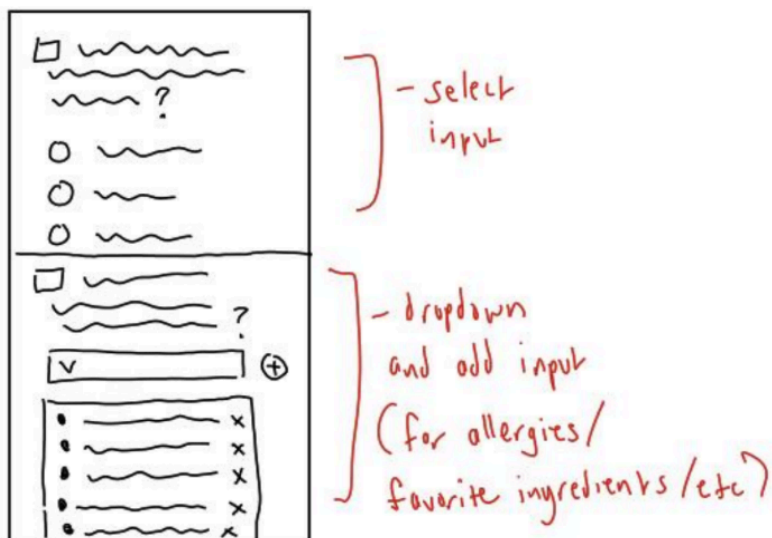 ?
- select
input
?
- dropdown
and add input
(for allergies/
favorite ingredients/etc)